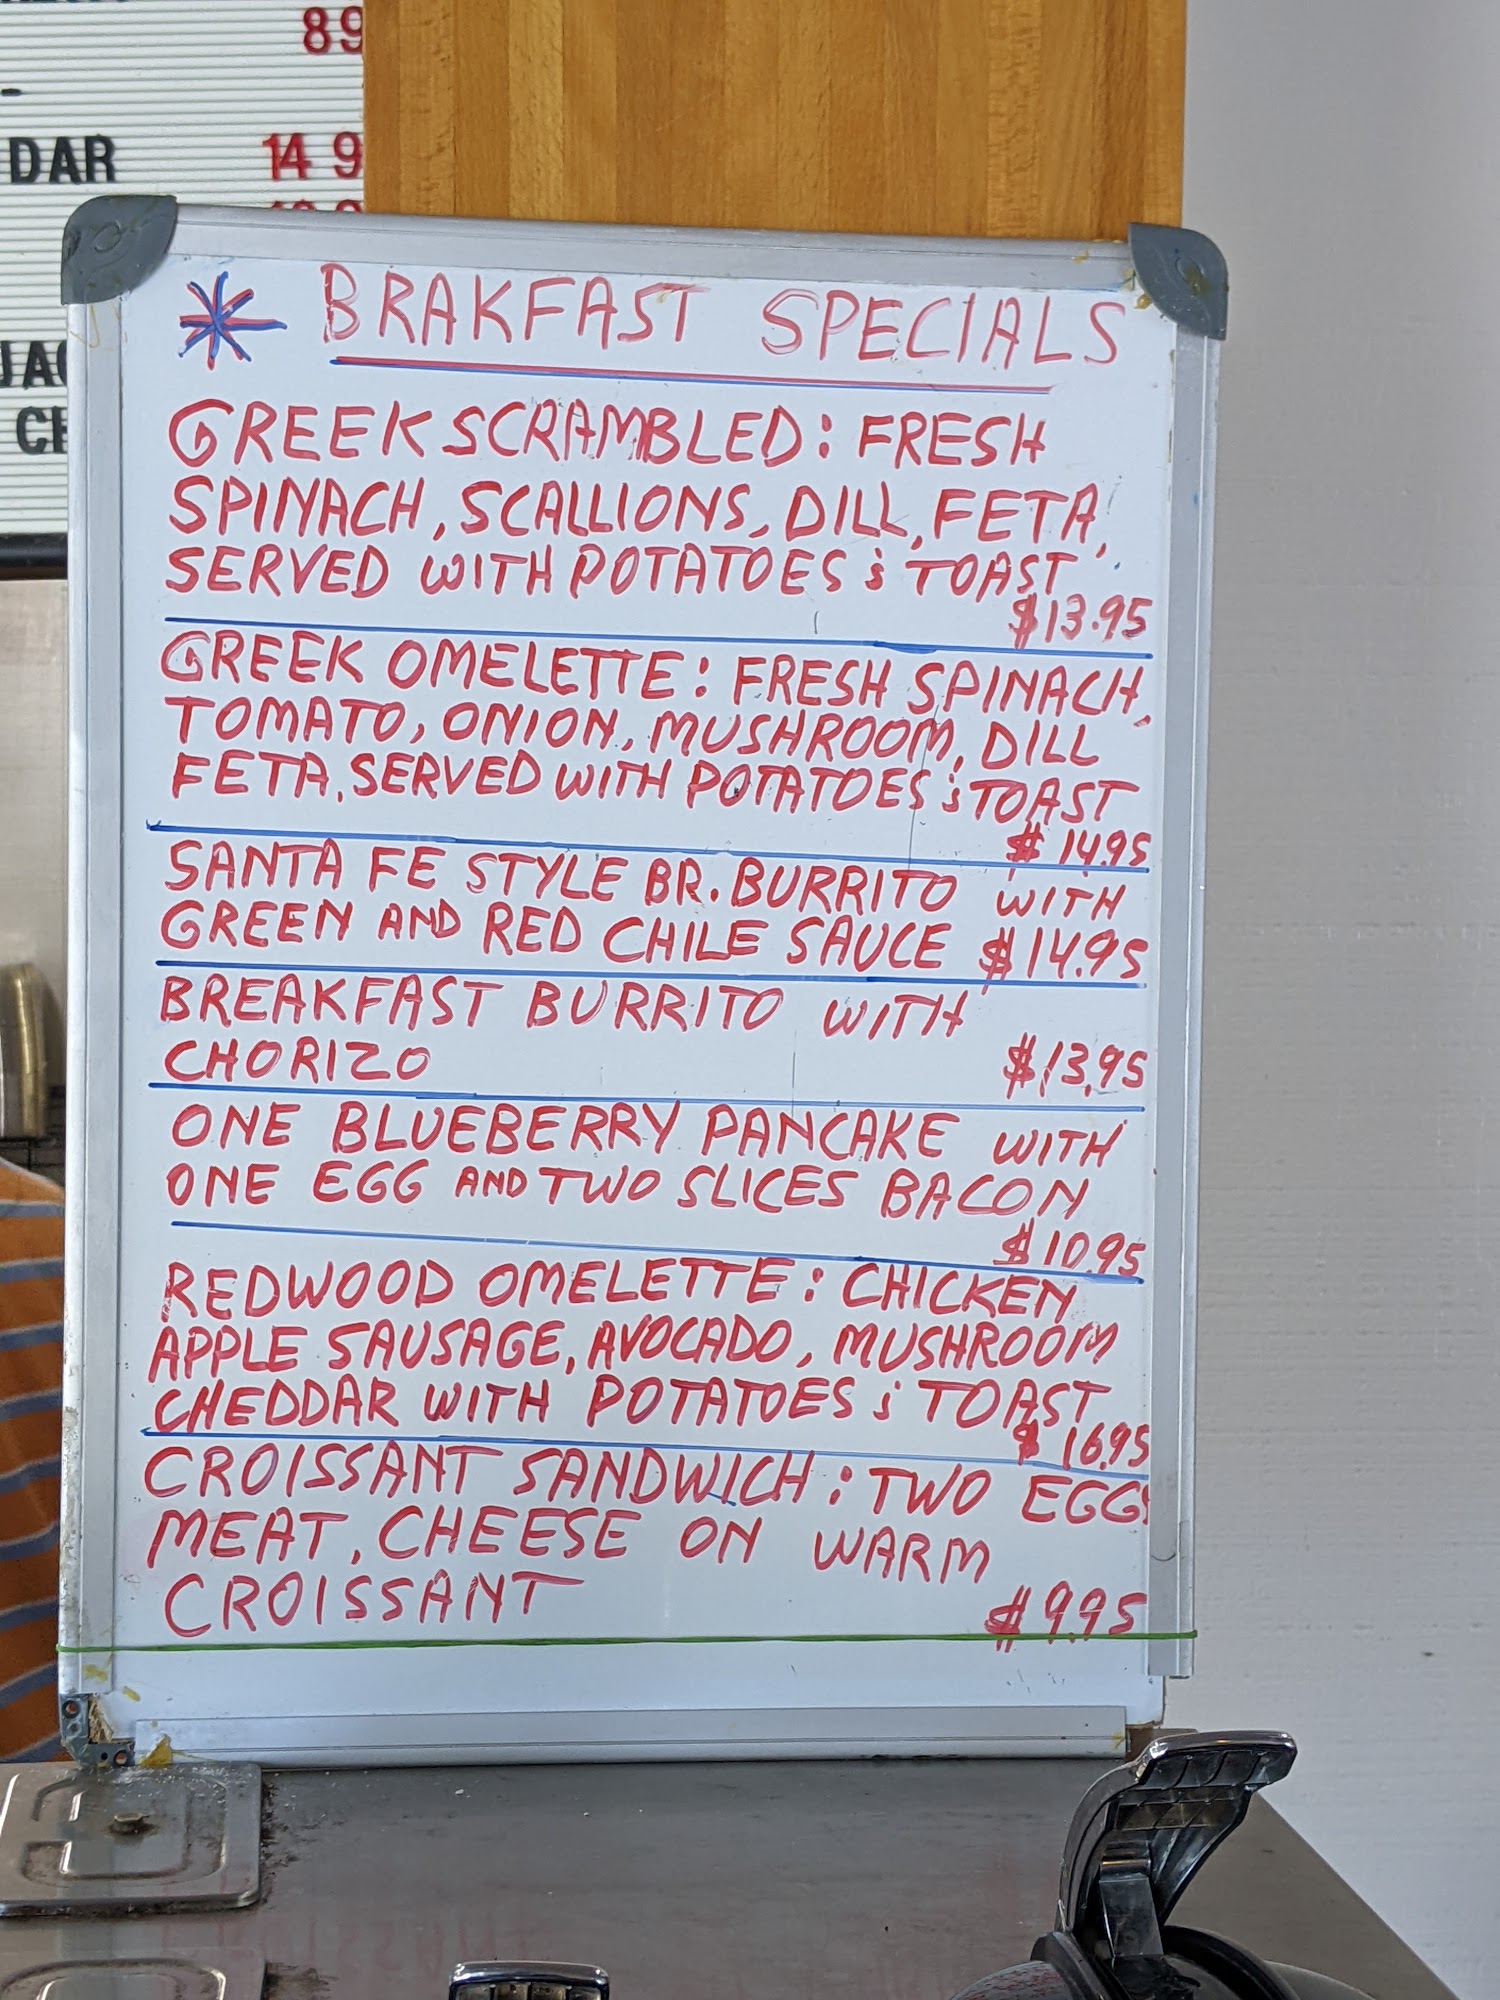 89
DAR 14 9
JAC
CH
BRAKFAST SPECIALS
GREEK SCRAMBLED: FRESH
SPINACH, SCALLIONS, DILL, FETA,
SERVED WITH POTATOES & TOAST
$13.95
GREEK OMELETTE: FRESH SPINACH,
TOMATO, ONION, MUSHROOM, DILL
FETA, SERVED WITH POTATOES & TOAST
$14.95
SANTA FE STYLE BR. BURRITO WITH
GREEN AND RED CHILE SAUCE $14.95
BREAKFAST BURRITO WITH
CHORIZO $13.95
ONE BLUEBERRY PANCAKE WITH
ONE EGG AND TWO SLICES BACON
$10.95
REDWOOD OMELETTE: CHICKEN
APPLE SAUSAGE, AVOCADO, MUSHROOM
CHEDDAR WITH POTATOES & TOAST
$16.95
CROISSANT SANDWICH: TWO EGGS
MEAT, CHEESE ON WARM
CROISSANT $9.95